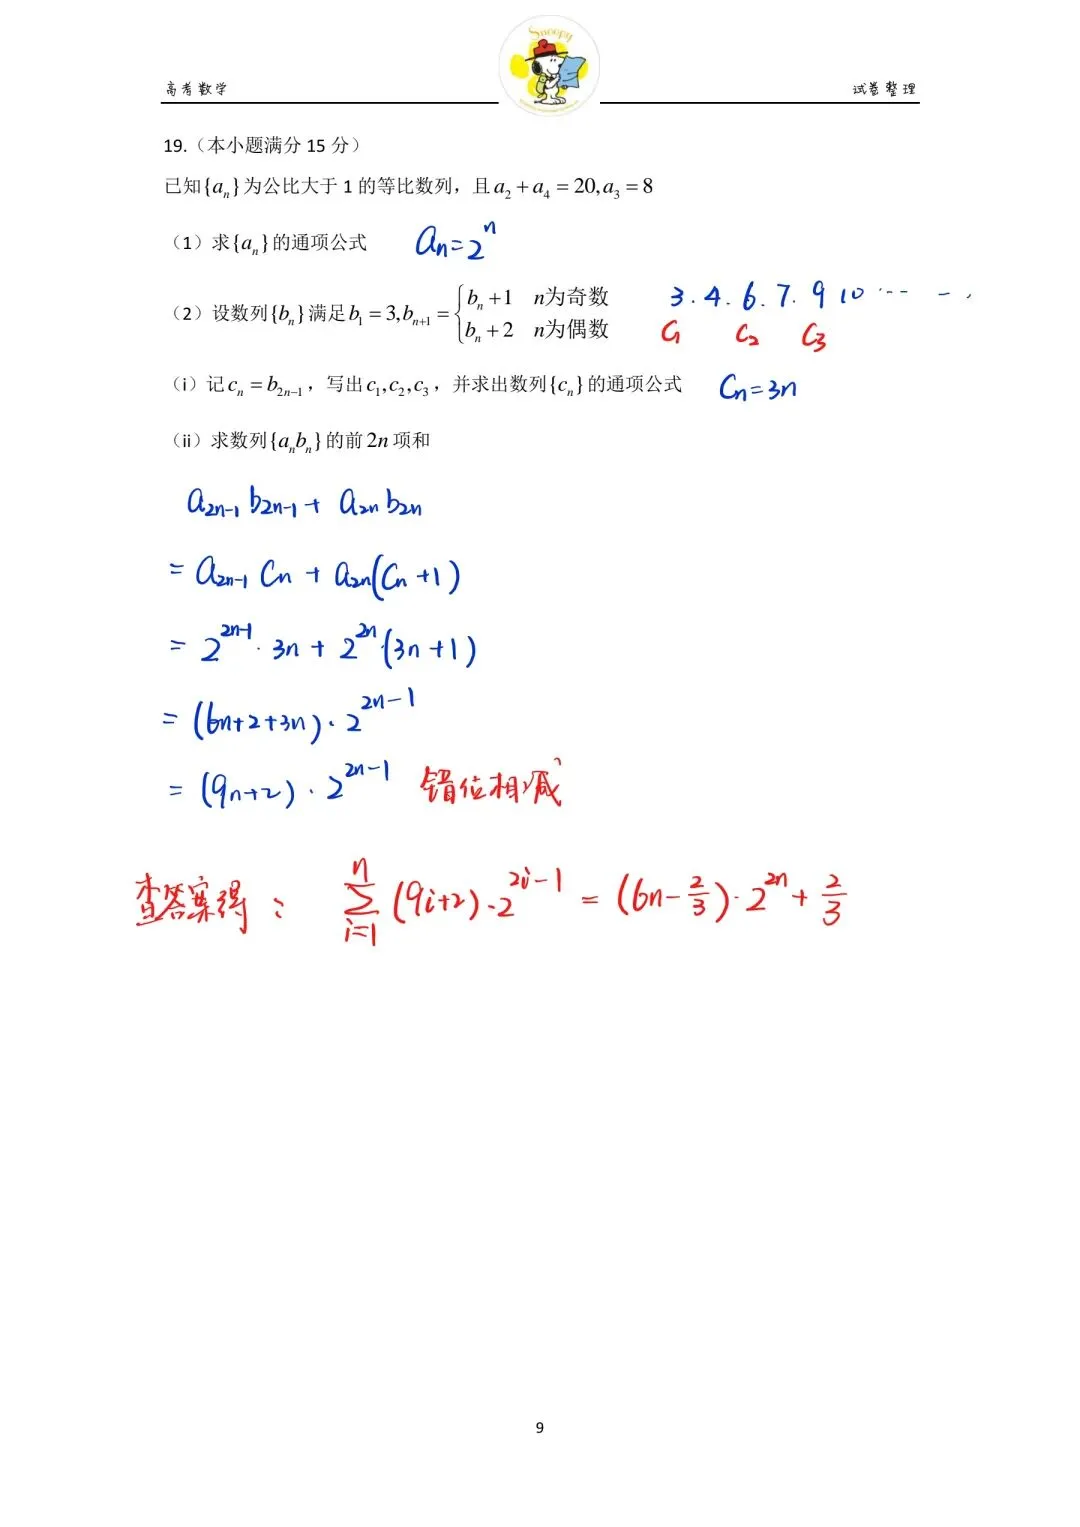 Snoopy
高考数学 试卷整理
19.（本小题满分 15 分）
已知{aₙ}为公比大于 1 的等比数列，且a₂ + a₄ = 20, a₃ = 8
（1）求{aₙ}的通项公式 aₙ=2ⁿ
（2）设数列{bₙ}满足b₁ = 3, bₙ₊₁ = { bₙ + 1 n为奇数
bₙ + 2 n为偶数
3. 4. 6. 7. 9 10 ……
C₁ C₂ C₃
（i）记cₙ = b₂ₙ₋₁，写出c₁, c₂, c₃，并求出数列{cₙ}的通项公式 Cₙ=3n
（ii）求数列{aₙbₙ}的前2n项和
a₂ₙ₋₁ b₂ₙ₋₁ + a₂ₙ b₂ₙ
= a₂ₙ₋₁ Cₙ + a₂ₙ(Cₙ+1)
= 2^(2n-1) · 3n + 2^(2n) · (3n+1)
= (6n+2+3n) · 2^(2n-1)
= (9n+2) · 2^(2n-1) 错位相减
查答案得： ∑_(i=1)^n (9i+2)·2^(2i-1) = (6n-2/3)·2^(2n) + 2/3
9